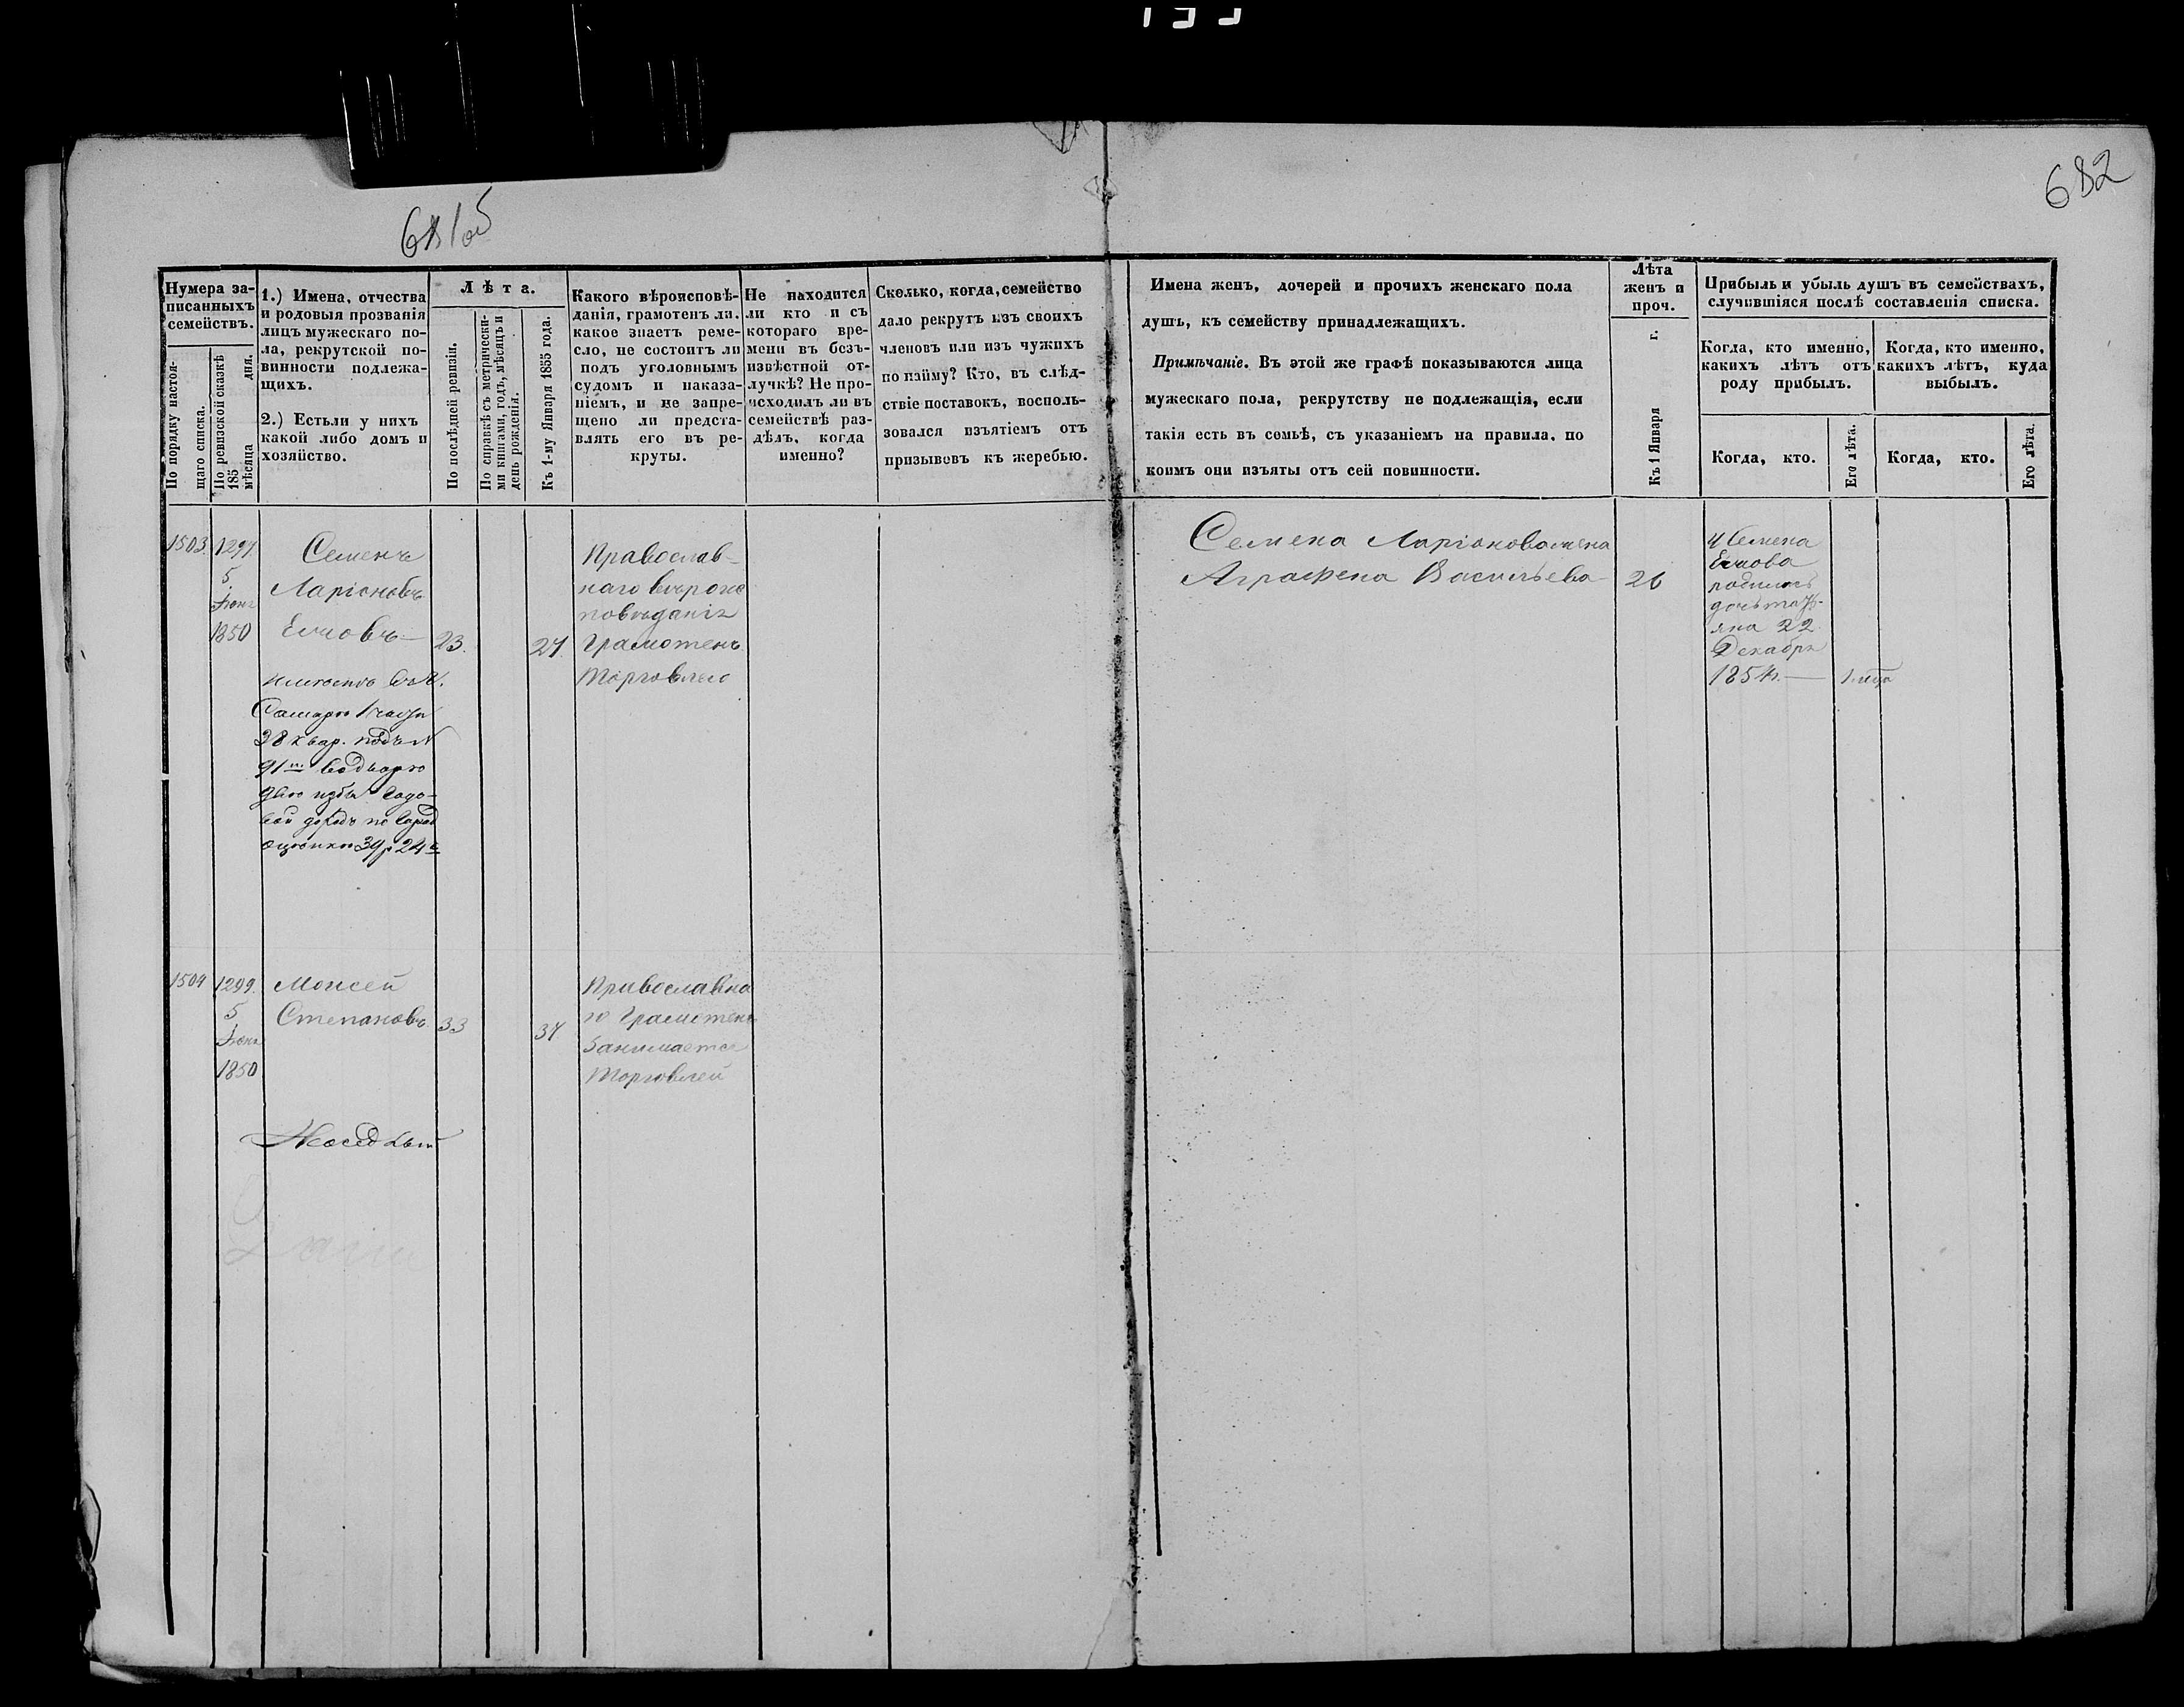 682
681 об
Нумера за-
писанныхъ
семействъ.
По порядку настоя-
щаго списка.
По ревизской сказкѣ
185
мѣсяца дня.
1.) Имена, отчества
и родовыя прозванія
лицъ мужескаго по-
ла, рекрутской по-
винности подлежа-
щихъ.
2.) Естьли у нихъ
какой либо домъ и
хозяйство.
Лѣта.
По послѣдней ревизіи.
По справкѣ съ метрически-
ми книгами, годъ, мѣсяцъ и
день рожденія.
Къ 1-му Января 1855 года.
Какого вѣроисповѣ-
данія, грамотенъ ли.
какое знаетъ реме-
сло, не состоитъ ли
подъ уголовнымъ
судомъ и наказа-
ніемъ, и не запре-
щено ли предста-
влять его въ ре-
круты.
Не находится
ли кто и съ
котораго вре-
мени въ безъ-
извѣстной от-
лучкѣ? Не про-
исходилъ ли въ
семействѣ раз-
дѣлъ, когда
именно?
Сколько, когда, семейство
дало рекрутъ изъ своихъ
членовъ или изъ чужихъ
по найму? Кто, въ слѣд-
ствіе поставокъ, восполь-
зовался изъятіемъ отъ
призывовъ къ жеребью.
Имена женъ, дочерей и прочихъ женскаго пола
душъ, къ семейству принадлежащихъ.
Примѣчаніе. Въ этой же графѣ показываются лица
мужескаго пола, рекрутству не подлежащія, если
такія есть въ семьѣ, съ указаніемъ на правила, по
коимъ они изъяты отъ сей повинности.
Лѣта
женъ и
проч.
Къ 1 Января г.
Прибыль и убыль душъ въ семействахъ,
случившіяся послѣ составленія списка.
Когда, кто именно,
какихъ лѣтъ отъ
роду прибылъ.
Когда, кто именно,
какихъ лѣтъ, куда
выбылъ.
Когда, кто.
Его лѣта.
Когда, кто.
Его лѣта.
1503.
1297.
5.
Іюня
1850
Семенъ
Ларіоновъ
23.
27.
Православ-
наго вѣроис
повѣданія
Грамотенъ
Торговлею
38 квар. подъ №
оцѣнкѣ 39 р 24 к
Семена Ларіонова жена
Аграфена Васильева
26
У Семена
родилась
дочь Тать-
яна 22
Декабря
1854 г.
1504
1299.
5
Іюня
1850
Моисей
Степановъ
33
37
Православна
го Грамотенъ
Занимается
Торговлей